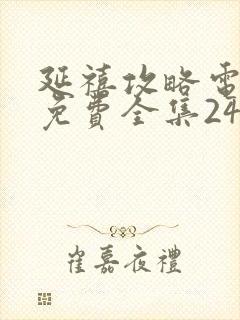 延禧攻略電
免費全集24
崔嘉夜禮